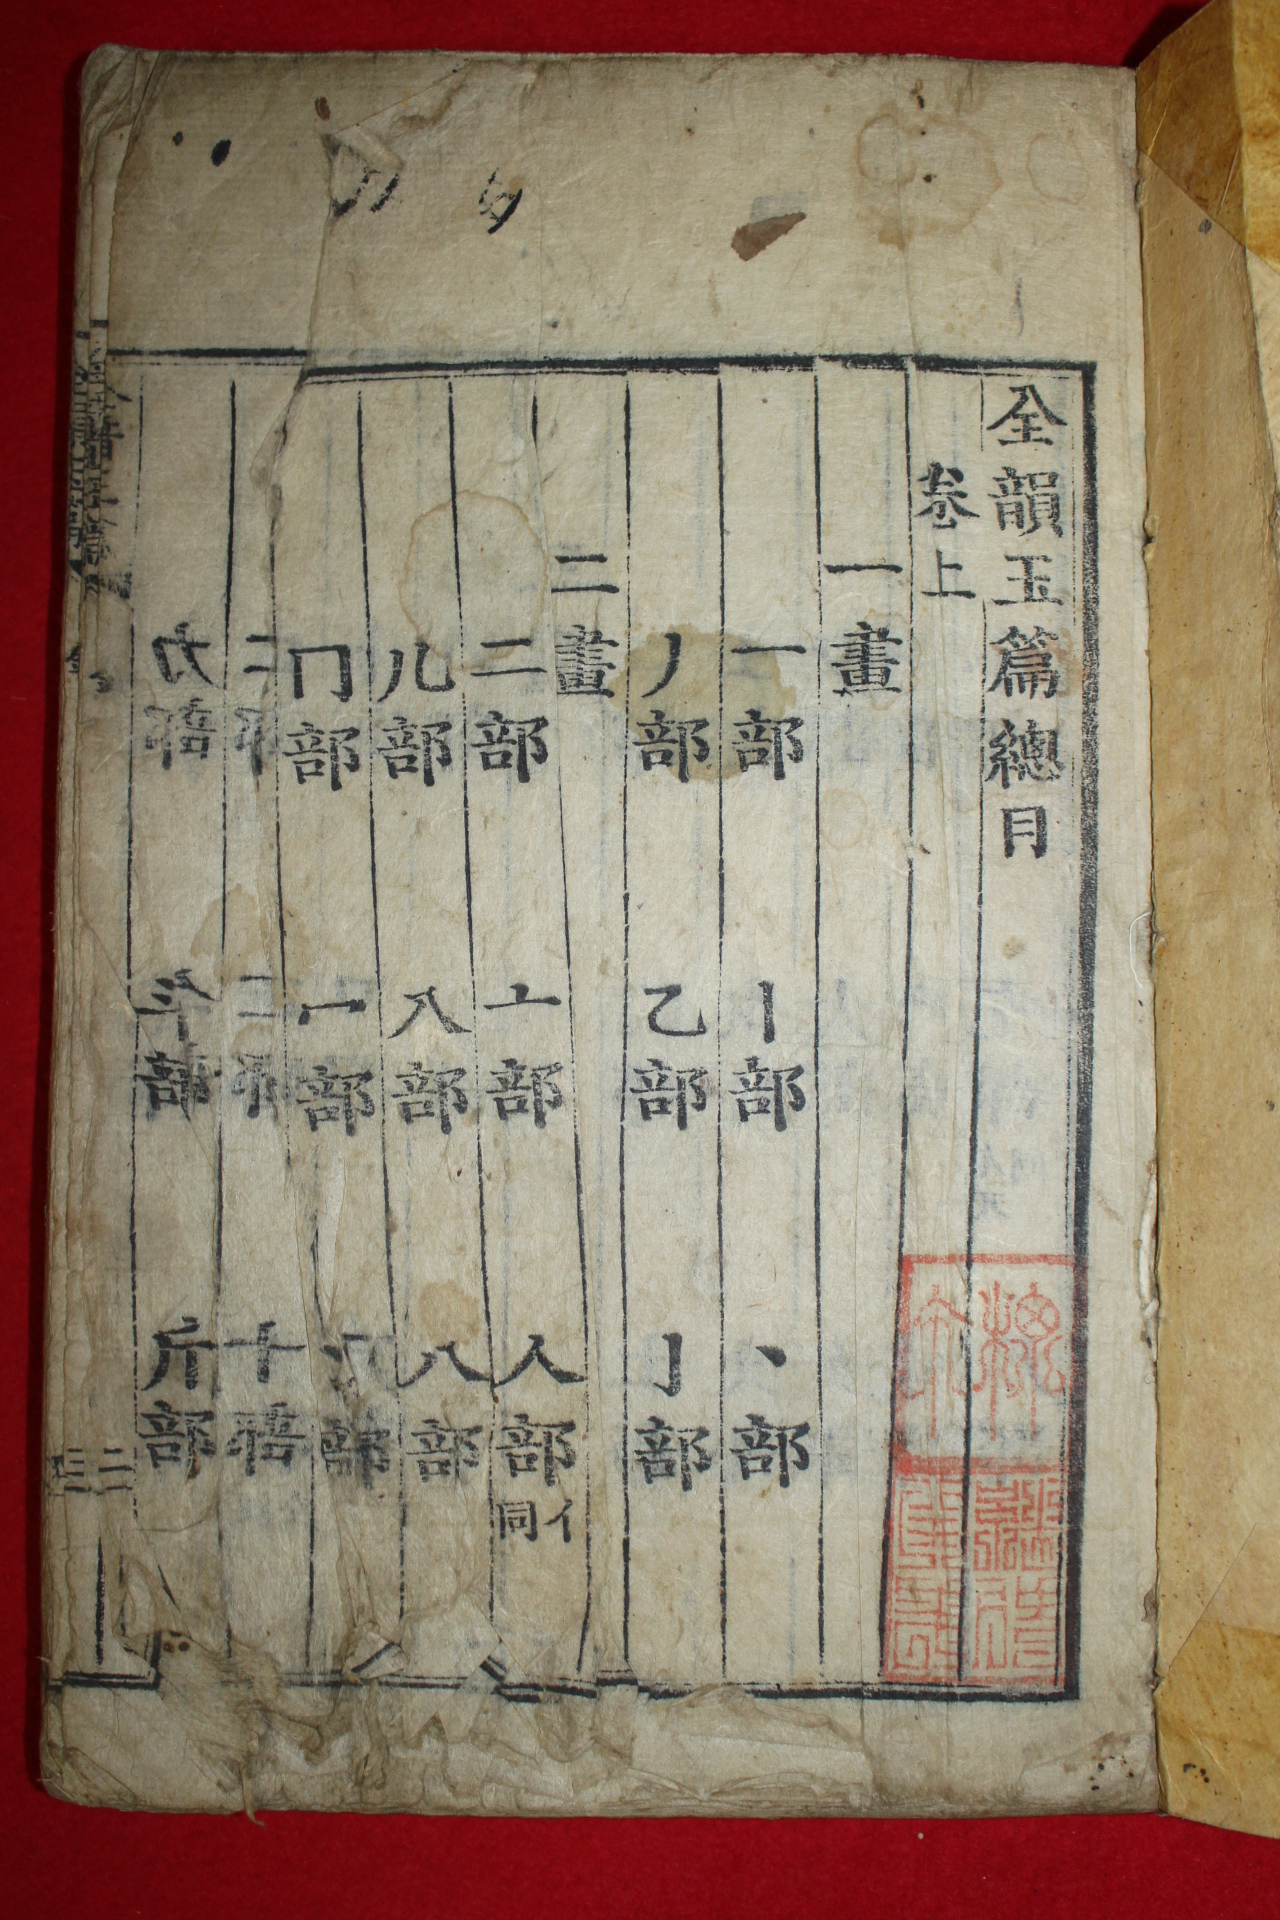 全韻玉篇總目
卷上
一畫
一部 丨部 丶部
丿部 乙部 亅部
二畫
二部 亠部 人部 亻同
儿部 入部 八部
冂部 冖部 部
十
部 斤部